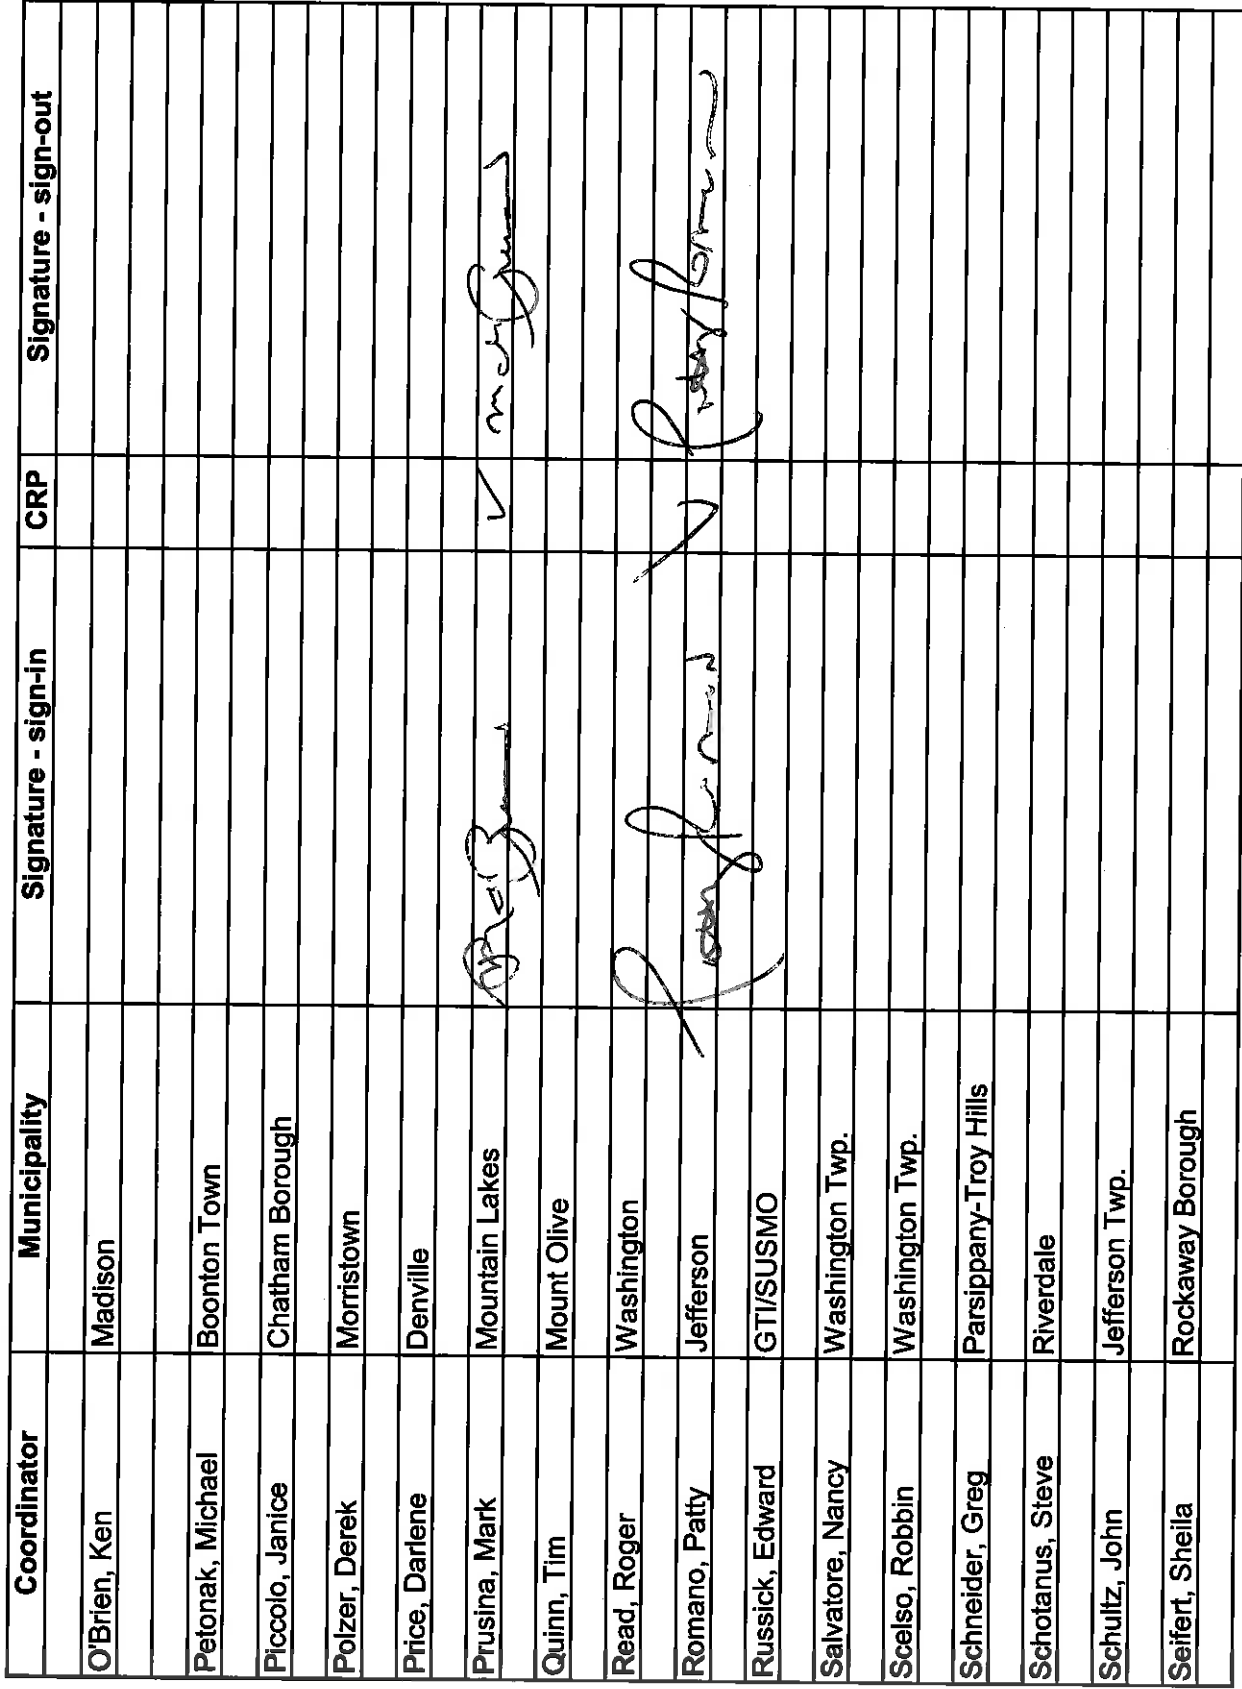 Coordinator Municipality Signature - sign-in CRP Signature - sign-out
O'Brien, Ken Madison
Petonak, Michael Boonton Town
Piccolo, Janice Chatham Borough
Polzer, Derek Morristown
Price, Darlene Denville
Prusina, Mark Mountain Lakes ✓
Quinn, Tim Mount Olive
Read, Roger Washington
Romano, Patty Jefferson ✓
Russick, Edward GTI/SUSMO
Salvatore, Nancy Washington Twp.
Scelso, Robbin Washington Twp.
Schneider, Greg Parsippany-Troy Hills
Schotanus, Steve Riverdale
Schultz, John Jefferson Twp.
Seifert, Sheila Rockaway Borough